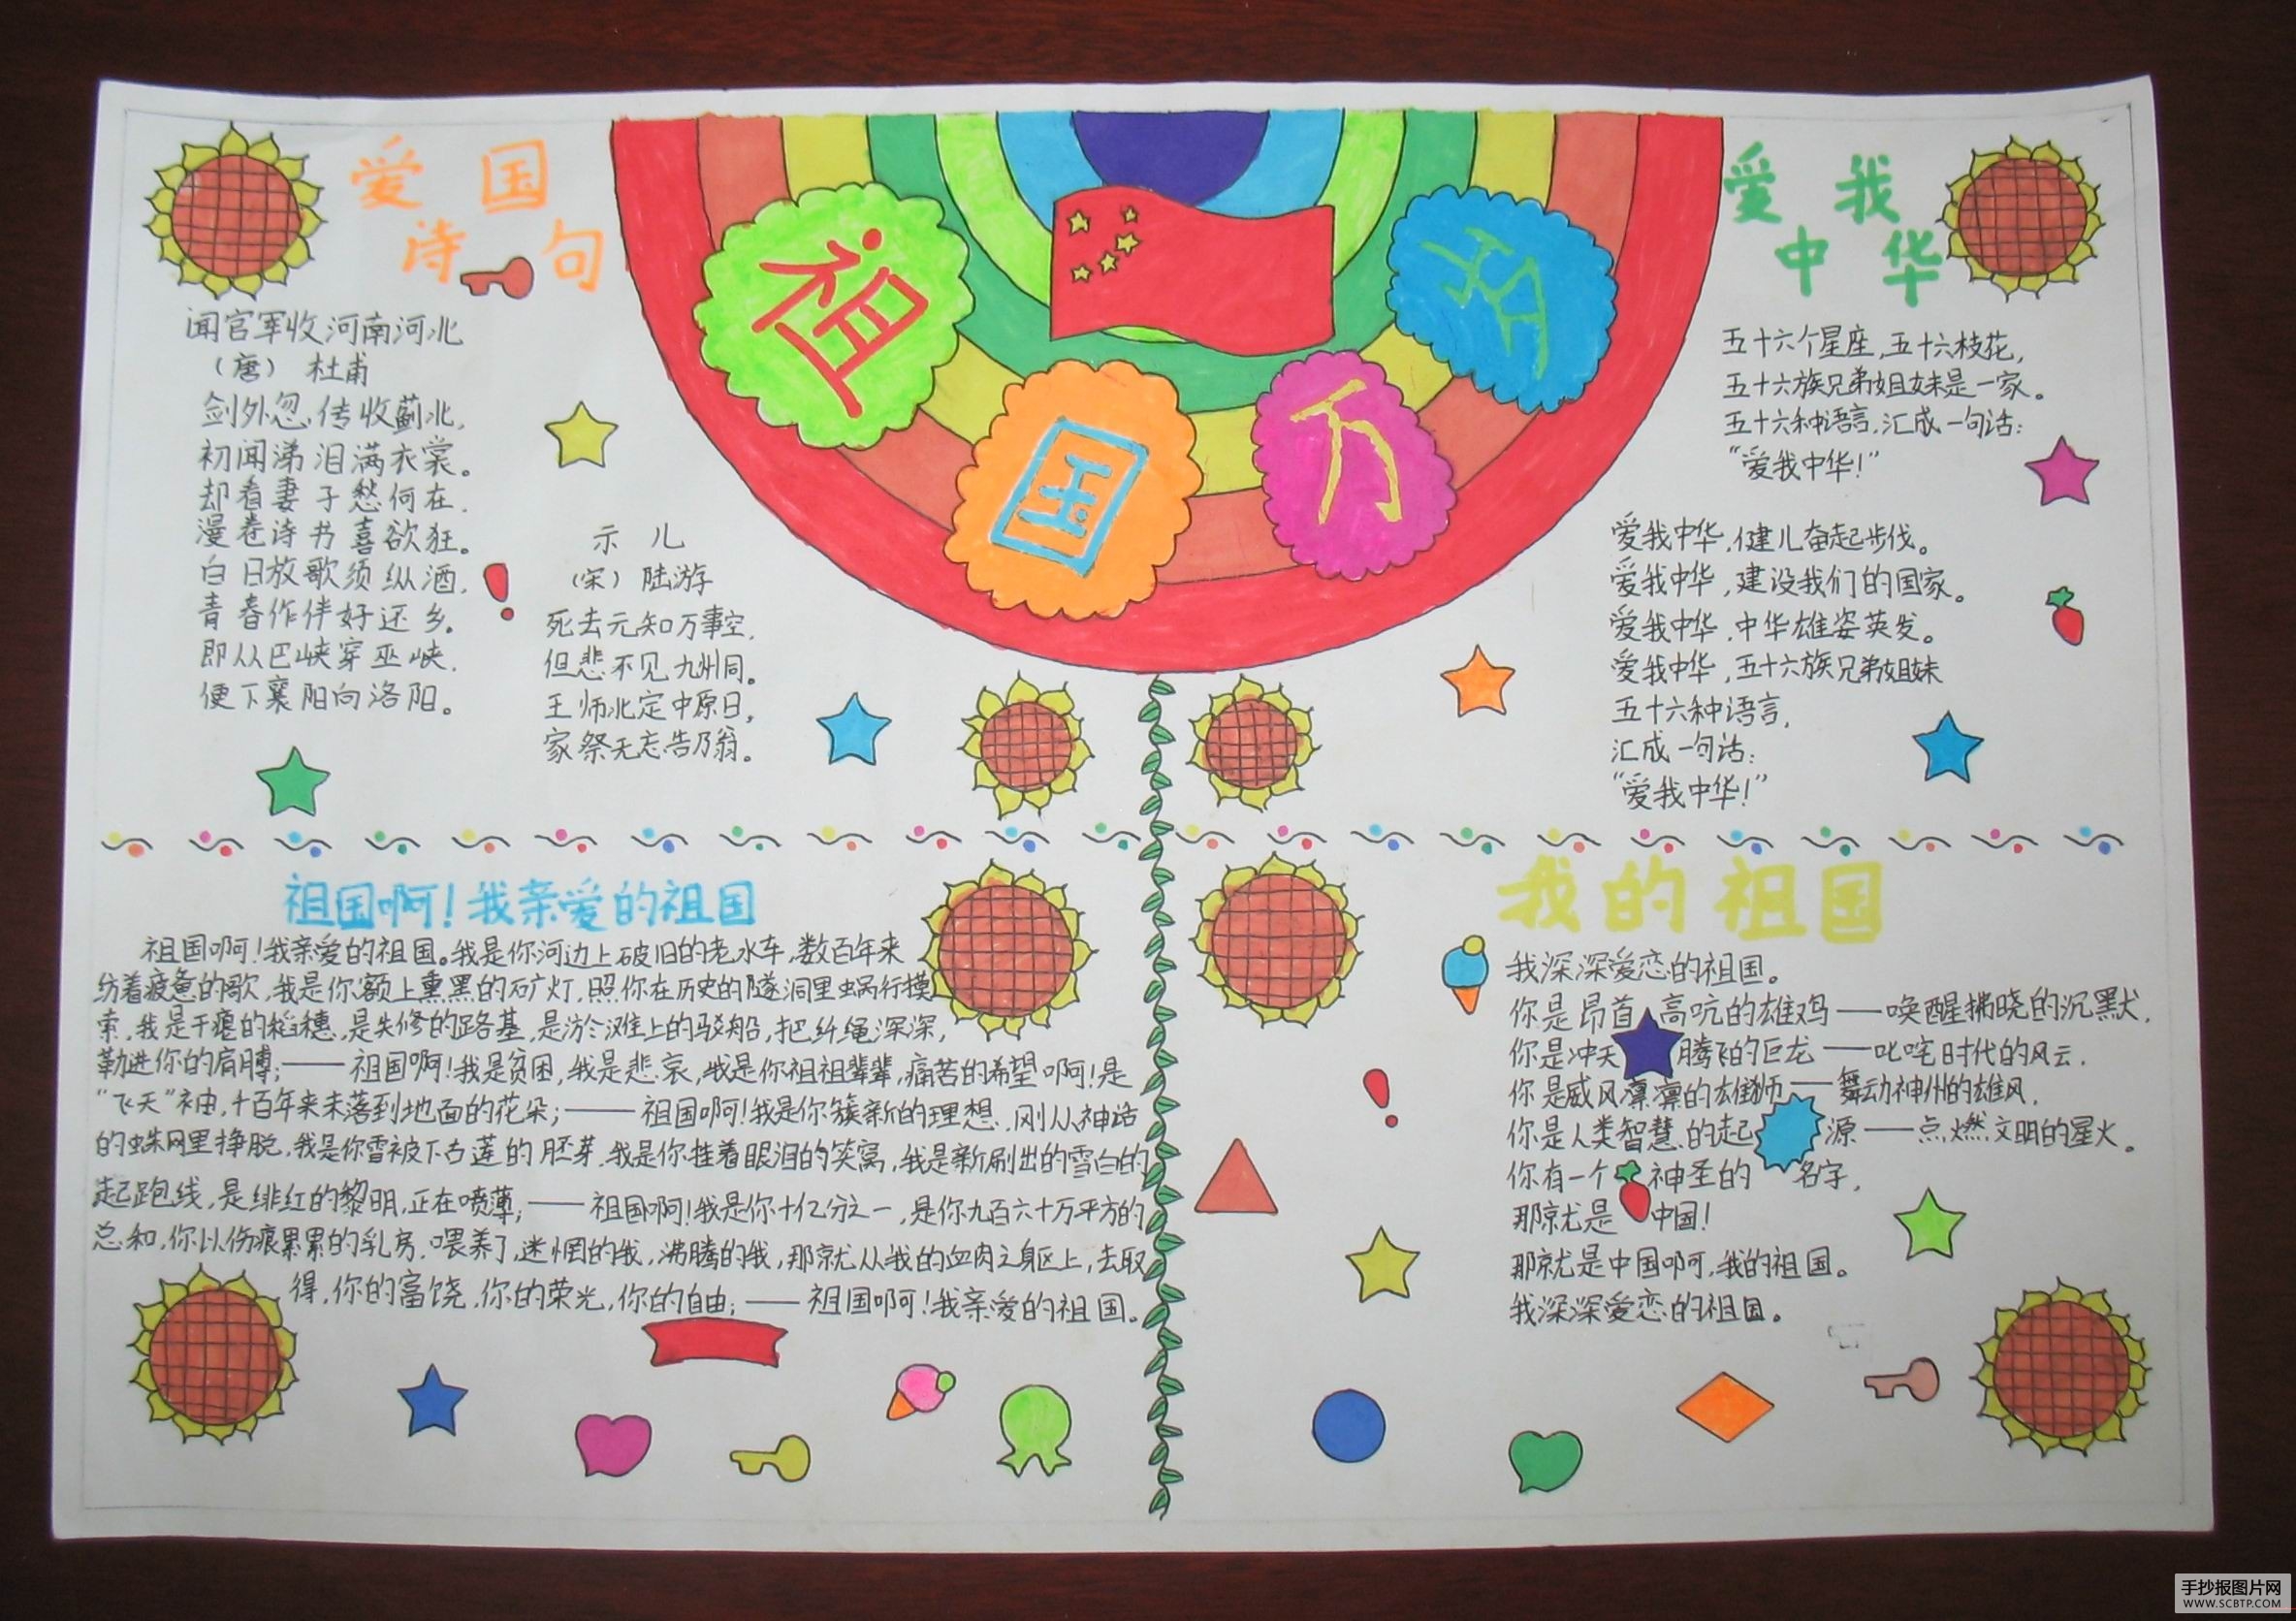 祖国万岁
爱国
诗句
闻官军收河南河北
（唐） 杜甫
剑外忽传收蓟北，
初闻涕泪满衣裳。
却看妻子愁何在，
漫卷诗书喜欲狂。
白日放歌须纵酒，
青春作伴好还乡。
即从巴峡穿巫峡，
便下襄阳向洛阳。
示儿
（宋）陆游
死去元知万事空，
但悲不见九州同。
王师北定中原日，
家祭无忘告乃翁。
爱我
中华
五十六个星座，五十六枝花，
五十六族兄弟姐妹是一家。
五十六种语言，汇成一句话：
“爱我中华！”
爱我中华，健儿奋起步伐。
爱我中华，建设我们的国家。
爱我中华，中华雄姿英发。
爱我中华，五十六族兄弟姐妹
五十六种语言，
汇成一句话：
“爱我中华！”
祖国啊！我亲爱的祖国
祖国啊！我亲爱的祖国。我是你河边上破旧的老水车，数百年来
纺着疲惫的歌，我是你额上熏黑的矿灯，照你在历史的隧洞里蜗行摸
索，我是干瘪的稻穗，是失修的路基，是淤滩上的驳船，把纤绳深深，
勒进你的肩膊；——祖国啊！我是贫困，我是悲哀，我是你祖祖辈辈，痛苦的希望啊！是
“飞天”袖，十百年来未落到地面的花朵；——祖国啊！我是你簇新的理想，刚从神话
的蛛网里挣脱，我是你雪被下古莲的胚芽，我是你挂着眼泪的笑窝，我是新刷出的雪白的
起跑线，是绯红的黎明，正在喷薄；——祖国啊！我是你十亿分之一，是你九百六十万平方的
总和，你以伤痕累累的乳房，喂养了，迷惘的我，沸腾的我，那就从我的血肉之躯上，去取
得，你的富饶，你的荣光，你的自由；——祖国啊！我亲爱的祖国。
我的祖国
我深深爱恋的祖国。
你是昂首高吭的雄鸡——唤醒拂晓的沉默，
你是冲天腾飞的巨龙——叱咤时代的风云，
你是威风凛凛的雄狮——舞动神州的雄风，
你是人类智慧的起源——点燃文明的星火。
你有一个神圣的名字，
那就是中国！
那就是中国啊，我的祖国。
我深深爱恋的祖国。
手抄报图片网
WWW.SCBTP.COM